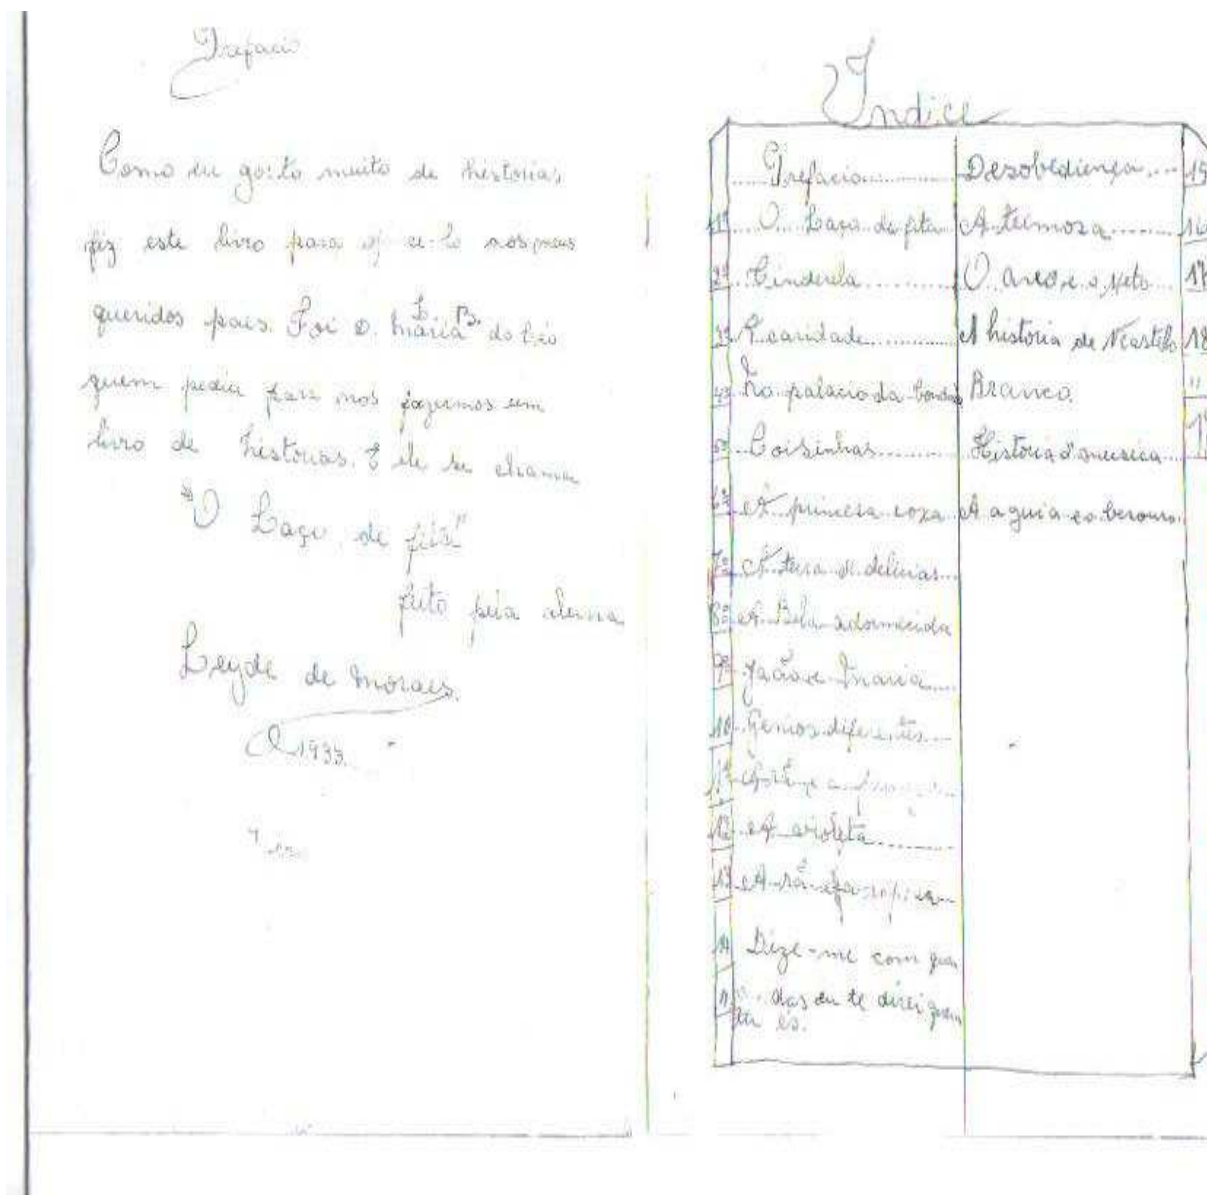 Prefacio
Como eu gosto muito de historias
fiz este livro para of ce-lo aos meus
queridos paes. Foi D. Maria L. B. do
quem pediu para nos fazermos um
livro de historias. E ele se chama
"O Laço de fita"
feito pela aluna
Leyde de Moraes.
1933.
Indice
Prefacio
1º O Laço de fita
2º Cinderela
3º A caridade
4º No palacio da
5º Coisinhas
6º A princesa coxa
7º A terra de delicias
8º A Bela adormecida
9º João e Maria
10 Genios diferentes
11º
12 A violeta
13 A rã
14 Dize-me com quem
das eu te direi quem
tu és.
Desobediença 15
A teimosa 16
O avô e o Neto 17
A historia de Nicastelo 18
Branco. "
Historia d'musica
A aguia e o besouro.